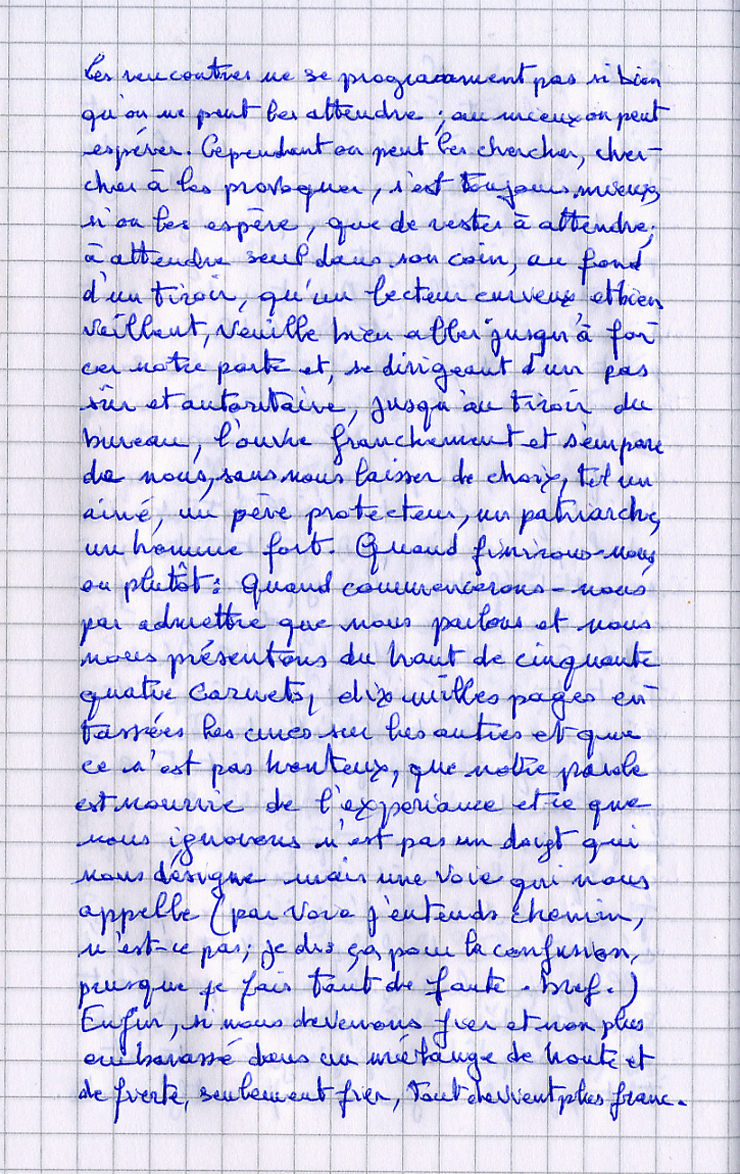 Les rencontres ne se programment pas si bien
qu'on ne peut les attendre ; au mieux on peut
espérer. Cependant on peut les chercher, cher-
cher à les provoquer, c'est toujours mieux,
si on les espère, que de rester à attendre ;
à attendre seul dans son coin, au fond
d'un tiroir, qu'un lecteur curieux, et bien
veillant, veuille bien aller jusqu'à for-
cer notre porte et, se dirigeant d'un pas
sûr et autoritaire, jusqu'au tiroir du
bureau, l'ouvre franchement et s'empare
de nous, sans nous laisser de choix, tel un
ainé, un père protecteur, un patriarche,
un homme fort. Quand finirons-nous,
ou plutôt : Quand commencerons-nous
par admettre que nous parlons et nous
nous présentons du haut de cinquante
quatre carnets, dix milles pages en-
tassées les unes sur les autres et que
ce n'est pas honteux, que notre parole
est nourrie de l'expériance et ce que
nous ignorons n'est pas un doigt qui
nous désigne mais une voie qui nous
appelle (par voie j'entends chemin,
n'est-ce pas ; je dis ça pour la confusion,
puisque je fais tant de faute. bref.)
Enfin, si nous devenons fier et non plus
embarassé dans un mélange de honte et
de fierté, seulement fier, tout devient plus franc.